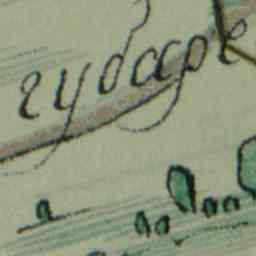 губаре